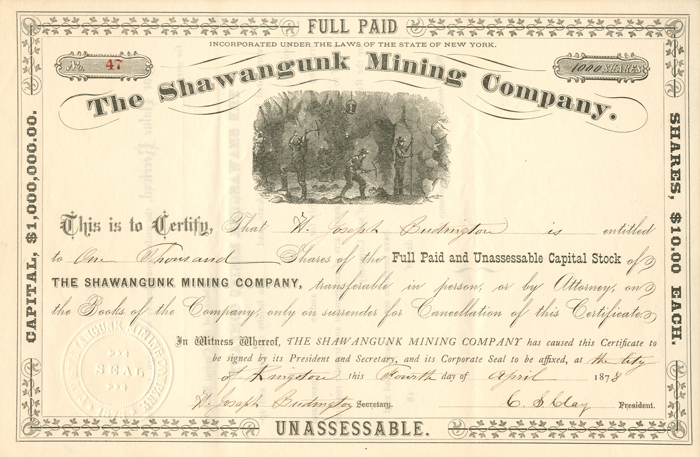 FULL PAID
INCORPORATED UNDER THE LAWS OF THE STATE OF NEW YORK.
No. 47
1000 SHARES
The Shawangunk Mining Company.
CAPITAL, $1,000,000.00.
SHARES, $10.00 EACH.
This is to Certify, That W. Joseph Budington is entitled
to One Thousand Shares of the Full Paid and Unassessable Capital Stock of
THE SHAWANGUNK MINING COMPANY, transferable in person, or by Attorney, on
the Books of the Company, only on surrender for Cancellation of this Certificate.
In Witness Whereof, THE SHAWANGUNK MINING COMPANY has caused this Certificate to
be signed by its President and Secretary, and its Corporate Seal to be affixed, at the City
of Kingston this Fourth day of April 1878
W. Joseph Budington Secretary. C. S. Clay President.
SEAL
UNASSESSABLE.